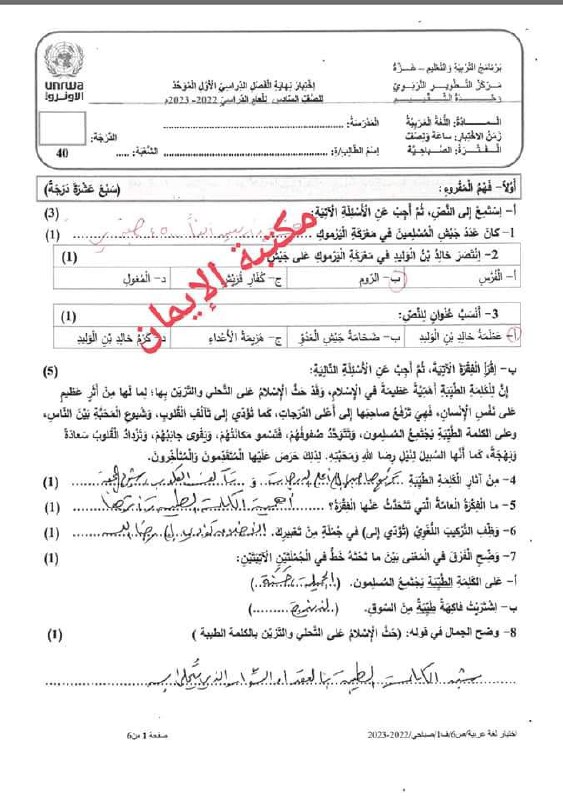 unrwa
الأونروا
برنامج التربية والتعليم - غزة
مركز التطوير التربوي
وحدة التقييم
اختبار نهاية الفصل الدراسي الأول الموحد
للصف السادس للعام الدراسي 2022- 2023م
المـــادة: اللغة العربية
زمن الاختبار: ساعة ونصف
الفـترة: الصباحية
المدرسة:
اسم الطالب/ة:
الشعبة: ....
الدرجة:
40
أولاً- فهم المقروء: (سبع عشرة درجة)
أ- استمع إلى النص، ثم أجب عن الأسئلة الآتية: (3)
1- كان عدد جيش المسلمين في معركة اليرموك (1)
2- انتصر خالد بن الوليد في معركة اليرموك على جيش (1)
أ- الفرس ب- الروم ج- كفار قريش د- المغول
3- أنسب عنوان للنص: (1)
أ- عظمة خالد بن الوليد ب- ضخامة جيش العدو ج- هزيمة الأعداء د- كرم خالد بن الوليد
مكتبة الإيمان
ب- اقرأ الفقرة الآتية، ثم أجب عن الأسئلة التالية: (5)
إن للكلمة الطيبة أهمية عظيمة في الإسلام، وقد حث الإسلام على التحلي والتزين بها؛ لما لها من أثر عظيم
على نفس الإنسان، فهي ترفع صاحبها إلى أعلى الدرجات، كما تؤدي إلى تآلف القلوب، وشيوع المحبة بين الناس،
وعلى الكلمة الطيبة يجتمع المسلمون، وتتوحد صفوفهم، فتسمو مكانتهم، ويقوى جانبهم، وتزداد القلوب سعادة
وبهجة، كما أنها السبيل لنيل رضا الله ومحبته. لذلك حرص عليها المتقدمون والمتأخرون.
4- من آثار الكلمة الطيبة و (1)
5- ما الفكرة العامة التي تتحدث عنها الفقرة؟ أهمية الكلمة الطيبة (1)
6- وظف التركيب اللغوي (تؤدي إلى) في جملة من تعبيرك. (1)
7- وضح الفرق في المعنى بين ما تحته خط في الجملتين الآتيتين: (1)
أ- على الكلمة الطيبة يجتمع المسلمون. (الجميلة الحسنة)
ب- اشتريت فاكهة طيبة من السوق. (لذيذة)
8- وضح الجمال في قوله: (حث الإسلام على التحلي والتزين بالكلمة الطيبة ) (1)
شبه الكلمة الطيبة بالعقد
اختبار لغة عربية/ص6/ف1/صباحي/2022-2023
صفحة 1 من6